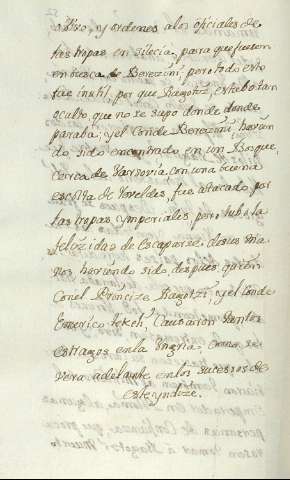 aviso, y ordenes a los oficiales de
las tropas en silecia, para que fuesen
en busca de Berezini, pero todo esto
fue inutil, por que Ragotzi, estubo tan
oculto que no se supo donde
paraba; y el Conde Berezini, havien
do sido encontrado en un Bosque,
cerca de Varsovia con una buena
escolta de rebeldes, fue atacado por
las tropas ymperiales pero tubo la
felizidad de escaparse, de sus ma
nos haviendo sido despues quien
con el Principe Ragotzi, y el Conde
Emerico tekeli, Causaron tantos
estragos en la Ungria, como se
vera adelante en los sucessos de
este yndize.